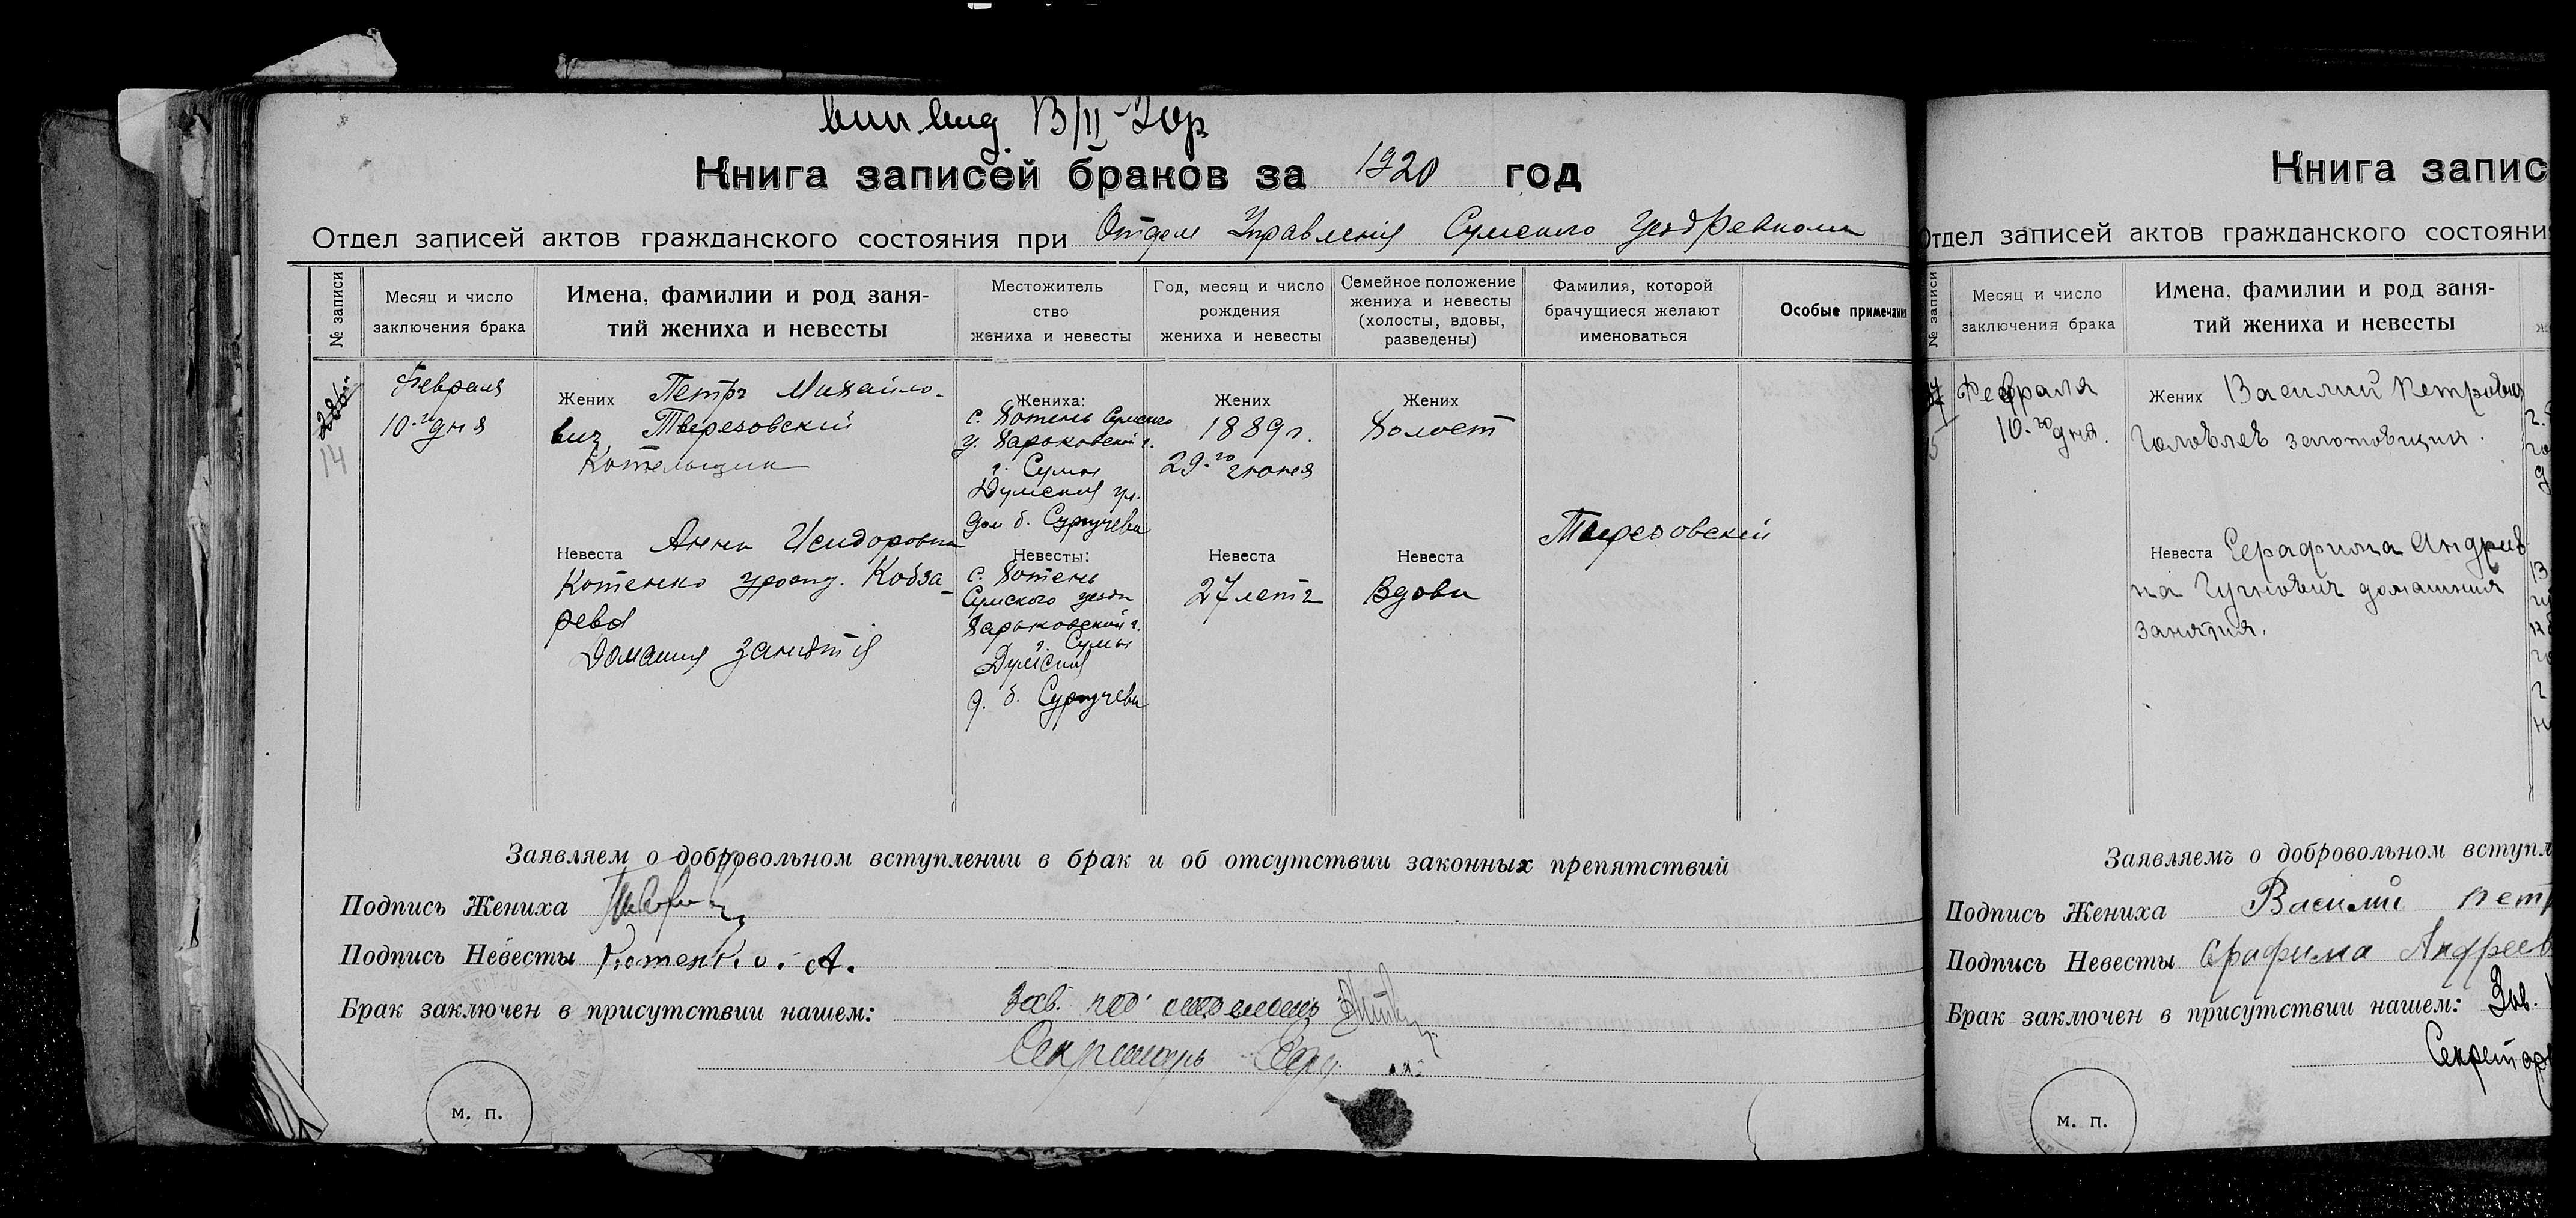 Книга записей браков за 1920 год
Отдел записей актов гражданского состояния при Отделе Управления Сумского Уездревкома
№ записи
Месяц и число
заключения брака
Имена, фамилии и род заня-
тий жениха и невесты
Местожитель
ство
жениха и невесты
Год, месяц и число
рождения
жениха и невесты
Семейное положение
жениха и невесты
(холосты, вдовы,
разведены)
Фамилия, которой
брачущиеся желают
именоваться
Особые примечани
286
14
Февраля
10-го дня
Жених Петр Михайло-
вич Тверезовский
Котельщик
Невеста Анна Исидоровна
Котенко урожд. Кобза-
рева
Домашния занятия
Жениха:
с. Хотень Сумского
у. Харьковской г.
г. Сумы
Думская ул.
дом б. Сургучева
Невесты:
с. Хотень
Сумского уезда
Харьковской г.
г. Сумы
Думская
д. б. Сургучева
Жених
1889 г.
29-го июня
Невеста
27 лет
Жених
Холост
Невеста
Вдова
Тверезовский
Заявляем о добровольном вступлении в брак и об отсутствии законных препятствий
Подпись Жениха
Подпись Невесты Котенко А.
Брак заключен в присутствии нашем: Зав. под отделом
Секретарь
м. п.
Книга запис
Отдел записей актов гражданского состояни
№ записи
Месяц и число
заключения брака
Имена, фамилии и род заня-
тий жениха и невесты
Февраля
10-го дня.
Жених Василий Петрович
Головлев заготовщик.
Невеста Серафима Андреев
на домашния
занятия.
Заявляемъ о добровольном вступл
Подпись Жениха Василий Петр
Подпись Невесты Серафима Андреев
Брак заключен в присутствии нашем: Зав.
Секретарь
м. п.